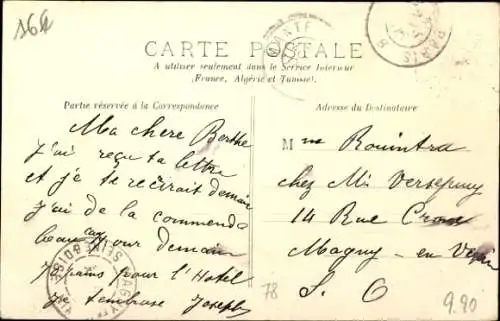 164
CARTE POSTALE
A utiliser seulement dans le Service Intérieur
(France, Algérie et Tunisie).
Partie réservée à la Correspondance
Ma chere Berthe
j'ai reçu ta lettre
et je te recirait demain
j'ai de la commende
beaucoup pour demain
pains pour l'Hotel
Je tembrase Joseph
Adresse du Destinataire
Mme Rouintra
chez Mr Versepuy
14 Rue
Magny-en Vexin
S. O
PARIS
78
9.90